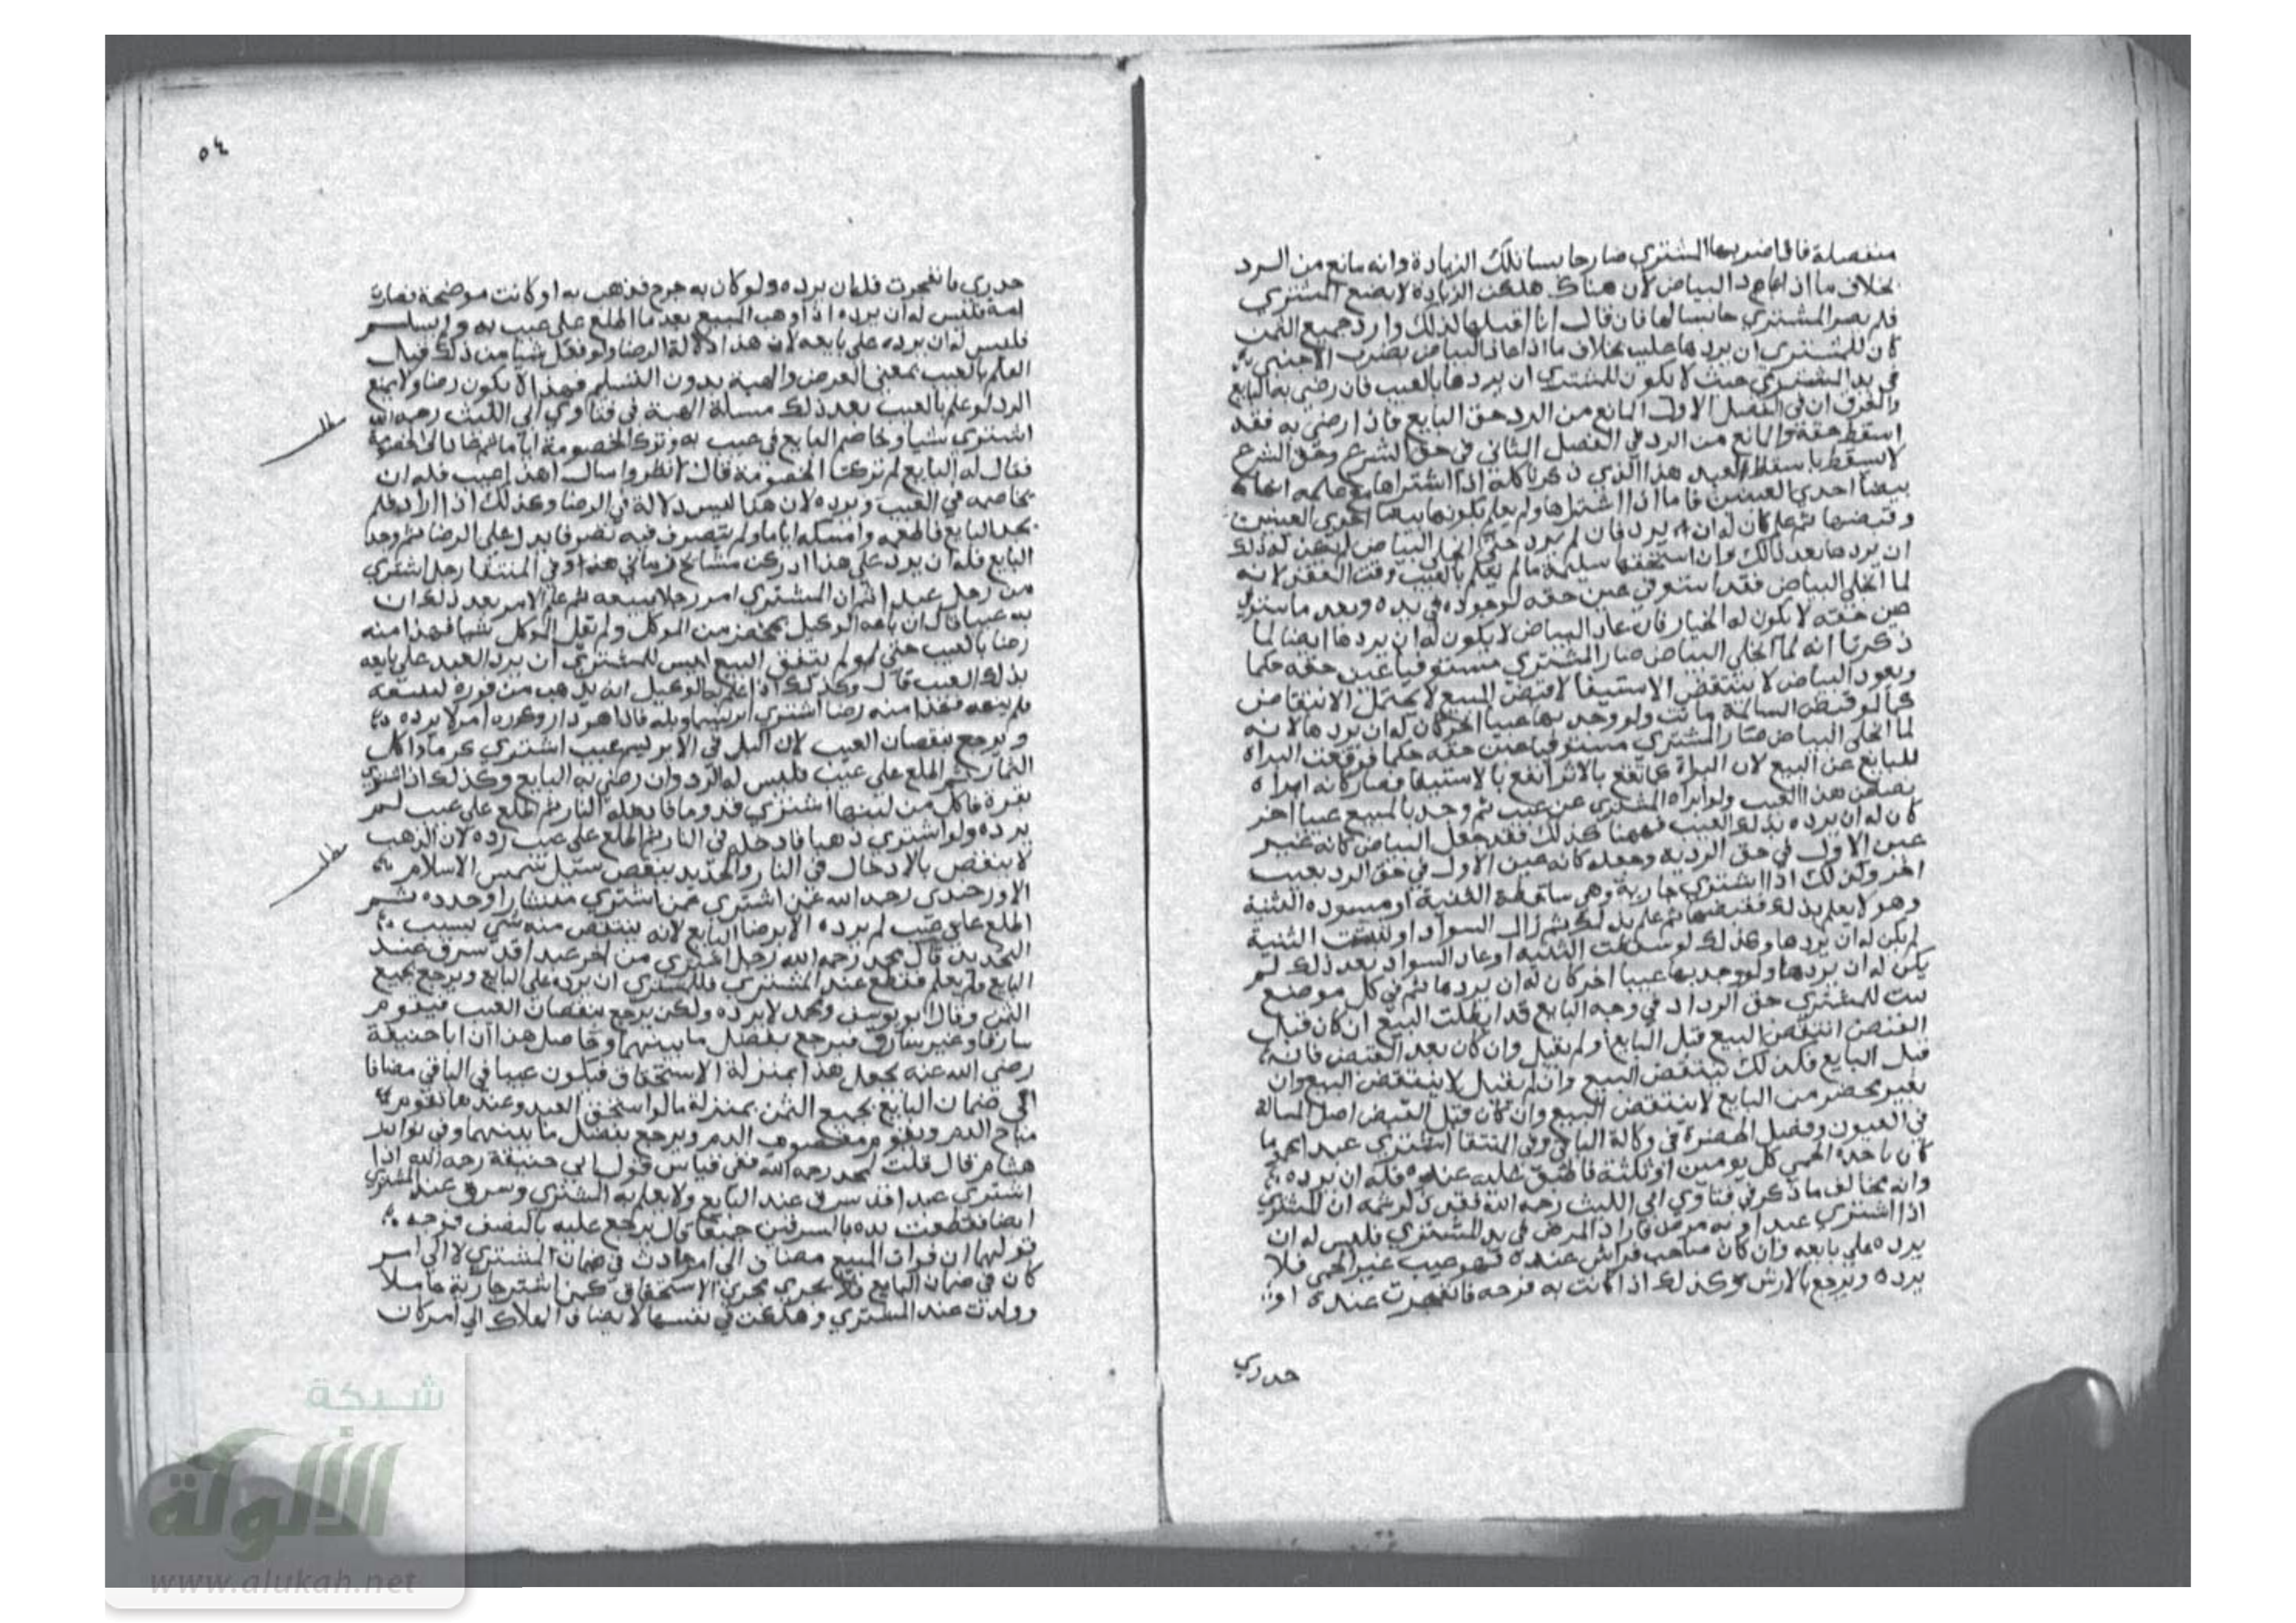 منفصلة فاذا ضربها المشتري صار حابسا تلك الزيادة وانه مانع من الرد
بخلاف ما اذا عاد البياض لان هناك هلكت الزيادة لا بصنع المشتري
فلم يصر المشتري حابسا لها فان قال انا اقبلها كذلك وارد جميع الثمن
كان للمشتري ان يردها عليه بخلاف ما اذا عاد البياض بضرب الاجنبي
في يد المشتري حيث لا يكون للمشتري ان يردها بالعيب فان رضي به البايع
والفرق ان في الفصل الاول المانع من الرد حق البايع فاذا رضي به فقد
اسقط حقه والمانع من الرد في الفصل الثاني في حق الشرع وحق الشرع
لا يسقط باسقاط العبد هذا الذي ذكرنا كله اذا اشتراها مع علمه
بياض احدي العينين فاما اذا اشتراها ولم يعلم بكونها بيضا احدي العينين
وقبضها ثم علم كان له ان يرد فان لم يرد حتي انجلي البياض لم يكن له ذلك
ان يردها بعد ذلك وان استحقها سليمة ما لم يعلم بالعيب وقت العقد لانه
لما انجلي البياض فقد استوفي عين حقه لوجوده في يده وبعد ما استوفي
عين حقه لا يكون له الخيار فان عاد البياض لا يكون له ان يردها ايضا لما
ذكرنا انه لما انجلي البياض صار المشتري مستوفيا عين حقه حكما
وبعود البياض لا ينتقض الاستيفا لا قبض المبيع لا يحتمل الانتقاض
كما لو قبض السالمة ماتت ولو وجد بها عيبا اخر كان له ان يردها لانه
لما انجلي البياض صار المشتري مستوفيا عين حقه حكما فوقعت البراة
للبايع عن البيع لان البراة كما تقع بالابرا تقع بالاستيفا فصار كانه ابراه
عن هذا العيب ولو ابراه المشتري عن عيب ثم وجد بالمبيع عيبا اخر
كان له ان يرده بذلك العيب فههنا كذلك فقد جعل البياض كانه غير
عين الاول في حق الردية وجعله كانه عين الاول في حق الرد بعيب
اخر وكذلك اذا اشتري جارية وهي ساقطة الثنية او مسوده الثنية
وهو لا يعلم بذلك فقبضها ثم علم بذلك ثم زال السواد او نبتت الثنية
لم يكن له ان يردها وكذلك لو سقطت الثنية او عاد السواد بعد ذلك لم
يكن له ان يردها ولو وجد بها عيبا اخر كان له ان يردها ثم في كل موضع
ثبت للمشتري حق الرد اذ في وجه البايع قد ابطلت البيع ان كان قبل
القبض انتقض البيع قبل البايع او لم يقبل وان كان بعد القبض فانه
قبل البايع فكذلك ينتقض البيع وان لم يقبل لا ينتقض البيع وان
بغير محضر من البايع لا ينتقض البيع وان كان قبل القبض اصل المسالة
في العيون وفصل الحضرة في وكالة الباقي وفي المنتقا اشتري عبدا
كان ياخذه الحمي كل يومين او ثلثة فاطبق عليه عنده فله ان يرده
وانه يخالف ما ذكر في فتاوي ابي الليث رحمه الله فقد ذكر ثمه ان المشتري
اذا اشتري عبدا وبه مرض فازاد المرض في يد المشتري فليس له ان
يرده علي بايعه وان كان صاحب فراش عنده فهو عيب غير الحمي فلا
يرده ويرجع بالارش وكذلك اذا كانت به قرحه فانفجرت عنده او
جدري
٥٤
جدري فانفجرت فله ان يرده ولو كان به جرح فذهب به او كانت موضحة فصارت
امة فليس له ان يرده اذا وهب المبيع بعد ما اطلع علي عيب به ولم يسلم
فليس له ان يرده علي بايعه لان هذا دلالة الرضا ولو فعل شيا من ذلك قبل
العلم بالعيب بمعني العرض والهبة بدون التسليم فهذا لا يكون رضا ولا يمنع
الرد لو علم بالعيب بعد ذلك مسلة الهبة في فتاوي ابي الليث رحمه الله
اشتري شيا وخاصم البايع في عيب به وترك الخصومة اياما ثم عاد الي الخصومة
فقال له البايع لم تركت الخصومة قال لانظر واسال اهذا عيب فله ان
يخاصمه في العيب ويرده لان هذا ليس دلالة في الرضا وكذلك اذا اراد فلم
يجد البايع فاطعمه وامسكه اياما ولم يتصرف فيه تصرفا يدل علي الرضا ثم وجد
البايع فله ان يرد علي هذا ادركت مشايخ زماني هذا وفي المنتقا رجل اشتري
من رجل عبدا ثم ان المشتري امر رجلا ببيعه ثم علم الامر بعد ذلك ان
به عيبا قال ان باعه الوكيل بمحضر من الموكل ولم يقل الموكل شيا فهذا منه
رضا بالعيب حتي لو لم يتفق البيع ليس للمشتري ان يرد العبد علي بايعه
بذلك العيب قال وكذلك اذا الوكيل انه يذهب من فوره ليبيعه
فلم يمنعه فهذا منه رضا اشتري ابريسما وبله فاذا هو دار لا يرده
ويرجع بنقصان العيب لان البلل في الابريسم عيب اشتري كرما فاكل
الثمار ثم اطلع علي عيب فليس له الرد وان رضي به البايع وكذلك اذا اشتري
بقرة فاكل من لبنها اشتري قدوما فادخله النار ثم اطلع علي عيب لم
يرده ولو اشتري ذهبا فادخله في النار ثم اطلع علي عيب رده لان الذهب
لا ينقص بالادخال في النار والحديد ينقص سيل شمس الاسلام
الاورجندي رحمه الله عن اشتري ممن اشتري منشارا وحدده ثم
اطلع علي عيب لم يرده الا برضا البايع لانه ينتقص منه شي بسبب
التحديد قال محمد رحمه الله رجل اشتري من اخر عبدا قد سرق عند
البايع ولم يعلم فقطع عند المشتري فللمشتري ان يرده علي البايع ويرجع بجميع
الثمن وقال ابو يوسف ومحمد لا يرده ولكن يرجع بنقصان العيب فيقوم
سارقا وغير سارق فيرجع بفضل ما بينهما وحاصل هذا ان ابا حنيفة
رضي الله عنه يجعل هذا بمنزلة الاستحقاق فيكون عيبا في الباقي مضافا
الي ضمان البايع بجميع الثمن بمنزلة ما لو استحق العبد وعندهما يقوم
مباح الدم ويقوم معصوم الدم ويرجع بفضل ما بينهما وفي نوادر
هشام قال قلت لمحمد رحمه الله ففي قياس قول ابي حنيفة رحمه الله اذا
اشتري عبدا قد سرق عند البايع ولا يعلم به المشتري وسرق عند المشتري
ايضا فقطعت يده بالسرقتين جميعا قال يرجع عليه بالنصف فوجه
قولهما ان فوات المبيع مضاف الي امر حادث في ضمان المشتري لا الي امر
كان في ضمان البايع فلا يجري مجري الاستحقاق كمن اشتر جارية حاملا
وولدت عند المشتري وهلكت في نفسها لا يضاف الهلاك الي امر كان
شبكة
الألوكة
www.alukah.net